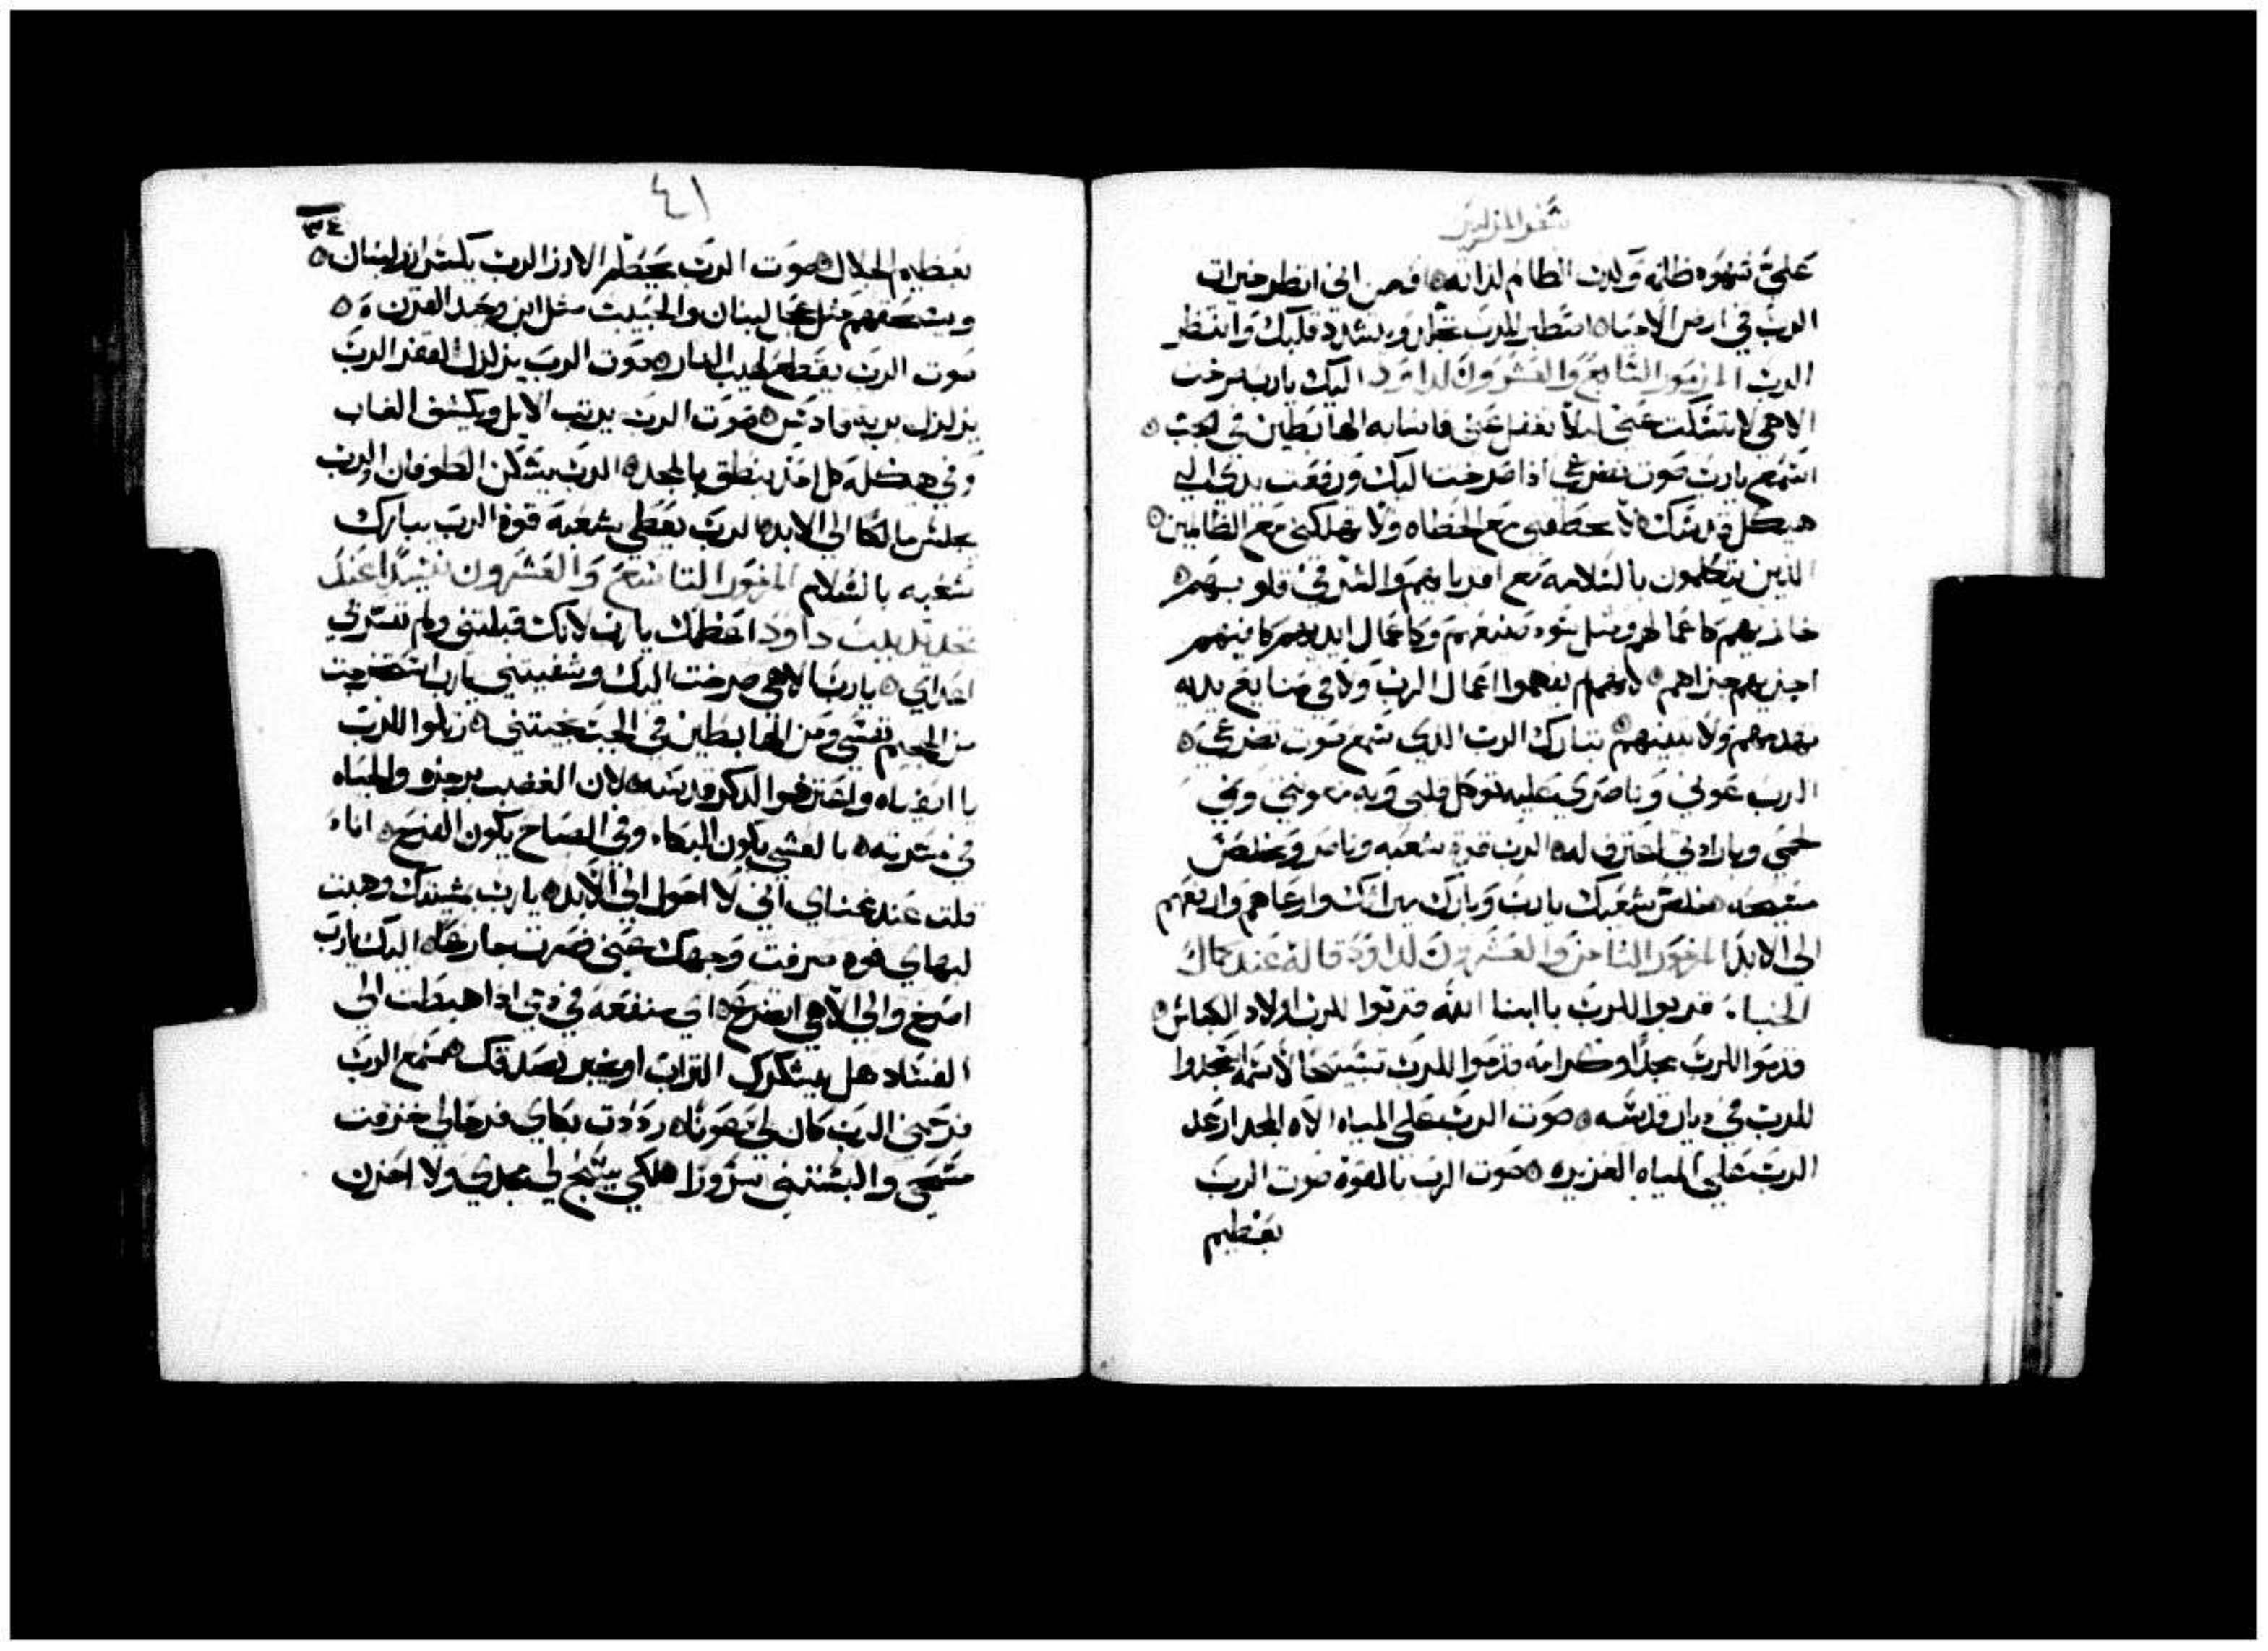 سفر المزامير
علي شهود ظلمه وكدب الظالم لداته ۞ اومن اني انظر خيرات
الرب في ارض الاحيا ۞ انتظر للرب تجلد ويشدد قلبك وانتظر
الرب المزمور السابع والعشرون لداوود اليك يارب صرخت
الاهي لا تسكت عني ليلا تغفل عني فاشابه الهابطين في الجب ۞
استمع يارب صوت تضرعي ادا صرخت اليك ورفعت يدي الي
هيكل قدسك لا تحطمني مع الخطاه ولا تهلكني مع الظالمين ۞
الدين يتكلمون بالسلامه مع اقرباهم والشر في قلوبهم ۞
جازيهم كاعمالهم ومثل سوء صنيعهم وكاعمال ايديهم كافيهم
اجزيهم جزاهم ۞ لانهم لم يفهموا اعمال الرب ولا في صنايع يديه
تهدمهم ولا تبنيهم ۞ تبارك الرب الدي سمع صوت تضرعي ۞
الرب عوني وناصري عليه توكل قلبي وبه معونتي ونمي
لحمي وبارادتي اعترف له ۞ الرب قوة شعبه وناصر ومخلص
مسيحه ۞ خلص شعبك يارب وبارك ميراثك وارعاهم وارفعهم
الي الابد المزمور الثامن والعشرون لداوود قاله عند كمال
الخبا : قدموا للرب يا ابنا الله قدموا للرب اولاد الكباش ۞
قدموا للرب مجدا وكرامه قدموا للرب تسبيحا لاسمه اسجدوا
للرب في ديار قدسه ۞ صوت الرب علي المياه الاه المجد ارعد
الرب علي المياه الغزيره ۞ صوت الرب بالقوة صوت الرب
بعظيم
٤١
٣٤
بعظيم الجلال ۞ صوت الرب يحطم الارز الرب يكسر ارز لبنان ۞
ويسحقهم مثل عجل لبنان والحبيب مثل ابن وحيد القرن ۞
صوت الرب يقطع لهيب النار ۞ صوت الرب يزلزل القفر الرب
يزلزل بريه قادس ۞ صوت الرب يرتب الايل ويكشف الغاب
وفي هيكله كل احد ينطق بالمجد ۞ الرب يسكن الطوفان والرب
يجلس مالكا الي الابد ۞ الرب يعطي شعبه قوة الرب يبارك
شعبه بالسلام المزمور التاسع والعشرون نشيدا عند
تجديد بيت داود اعظمك يا رب لانك قبلتني ولم تسر بي
اعداي ۞ يارب الاهي صرخت اليك وشفيتني يارب استخرجت
من الجحيم نفسي ومن الهابطين في الجب نجيتني ۞ رتلوا للرب
يا اتقياه واعترفوا لدكر قدسه ۞ لان الغضب برجزه والحياه
في مسرته ۞ بالعشي يكون البكاء وفي الصباح يكون الفرح ۞ انا
قلت عند غناي اني لا احول الي الابد ۞ يارب بمشيتك وهبت
لبهاي قوه صرفت وجهك عني فصرت جازعا ۞ اليك يارب
اصرخ والي الاهي اتضرع ۞ اي منفعه في دمي ادا هبطت الي
الفساد هل يشكرك التراب او يخبر بصدقك ۞ سمع الرب
فرحمني الرب كان لي عونا ۞ رددت بكاي فرحا لي خرقت
مسحي والبستني سرورا ۞ لكي يسبح لي مجدي ولا احزن